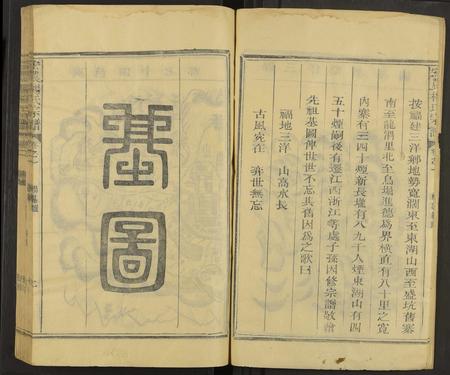 按福建三洋鄉地勢寬濶東至東湖山西至盛坑舊寨
南至龍洞里北至烏場進德為界橫直有八十里之寬
內寨有三四十煙新長壠有八九千人煙東湖山有四
五十煙嗣後有遷江西浙江等處子孫因修宗譜敬繪
先祖基圖俾世世不忘其舊因為之歌曰
福地三洋 山高水長
古風宛在 奕世無忘
基圖